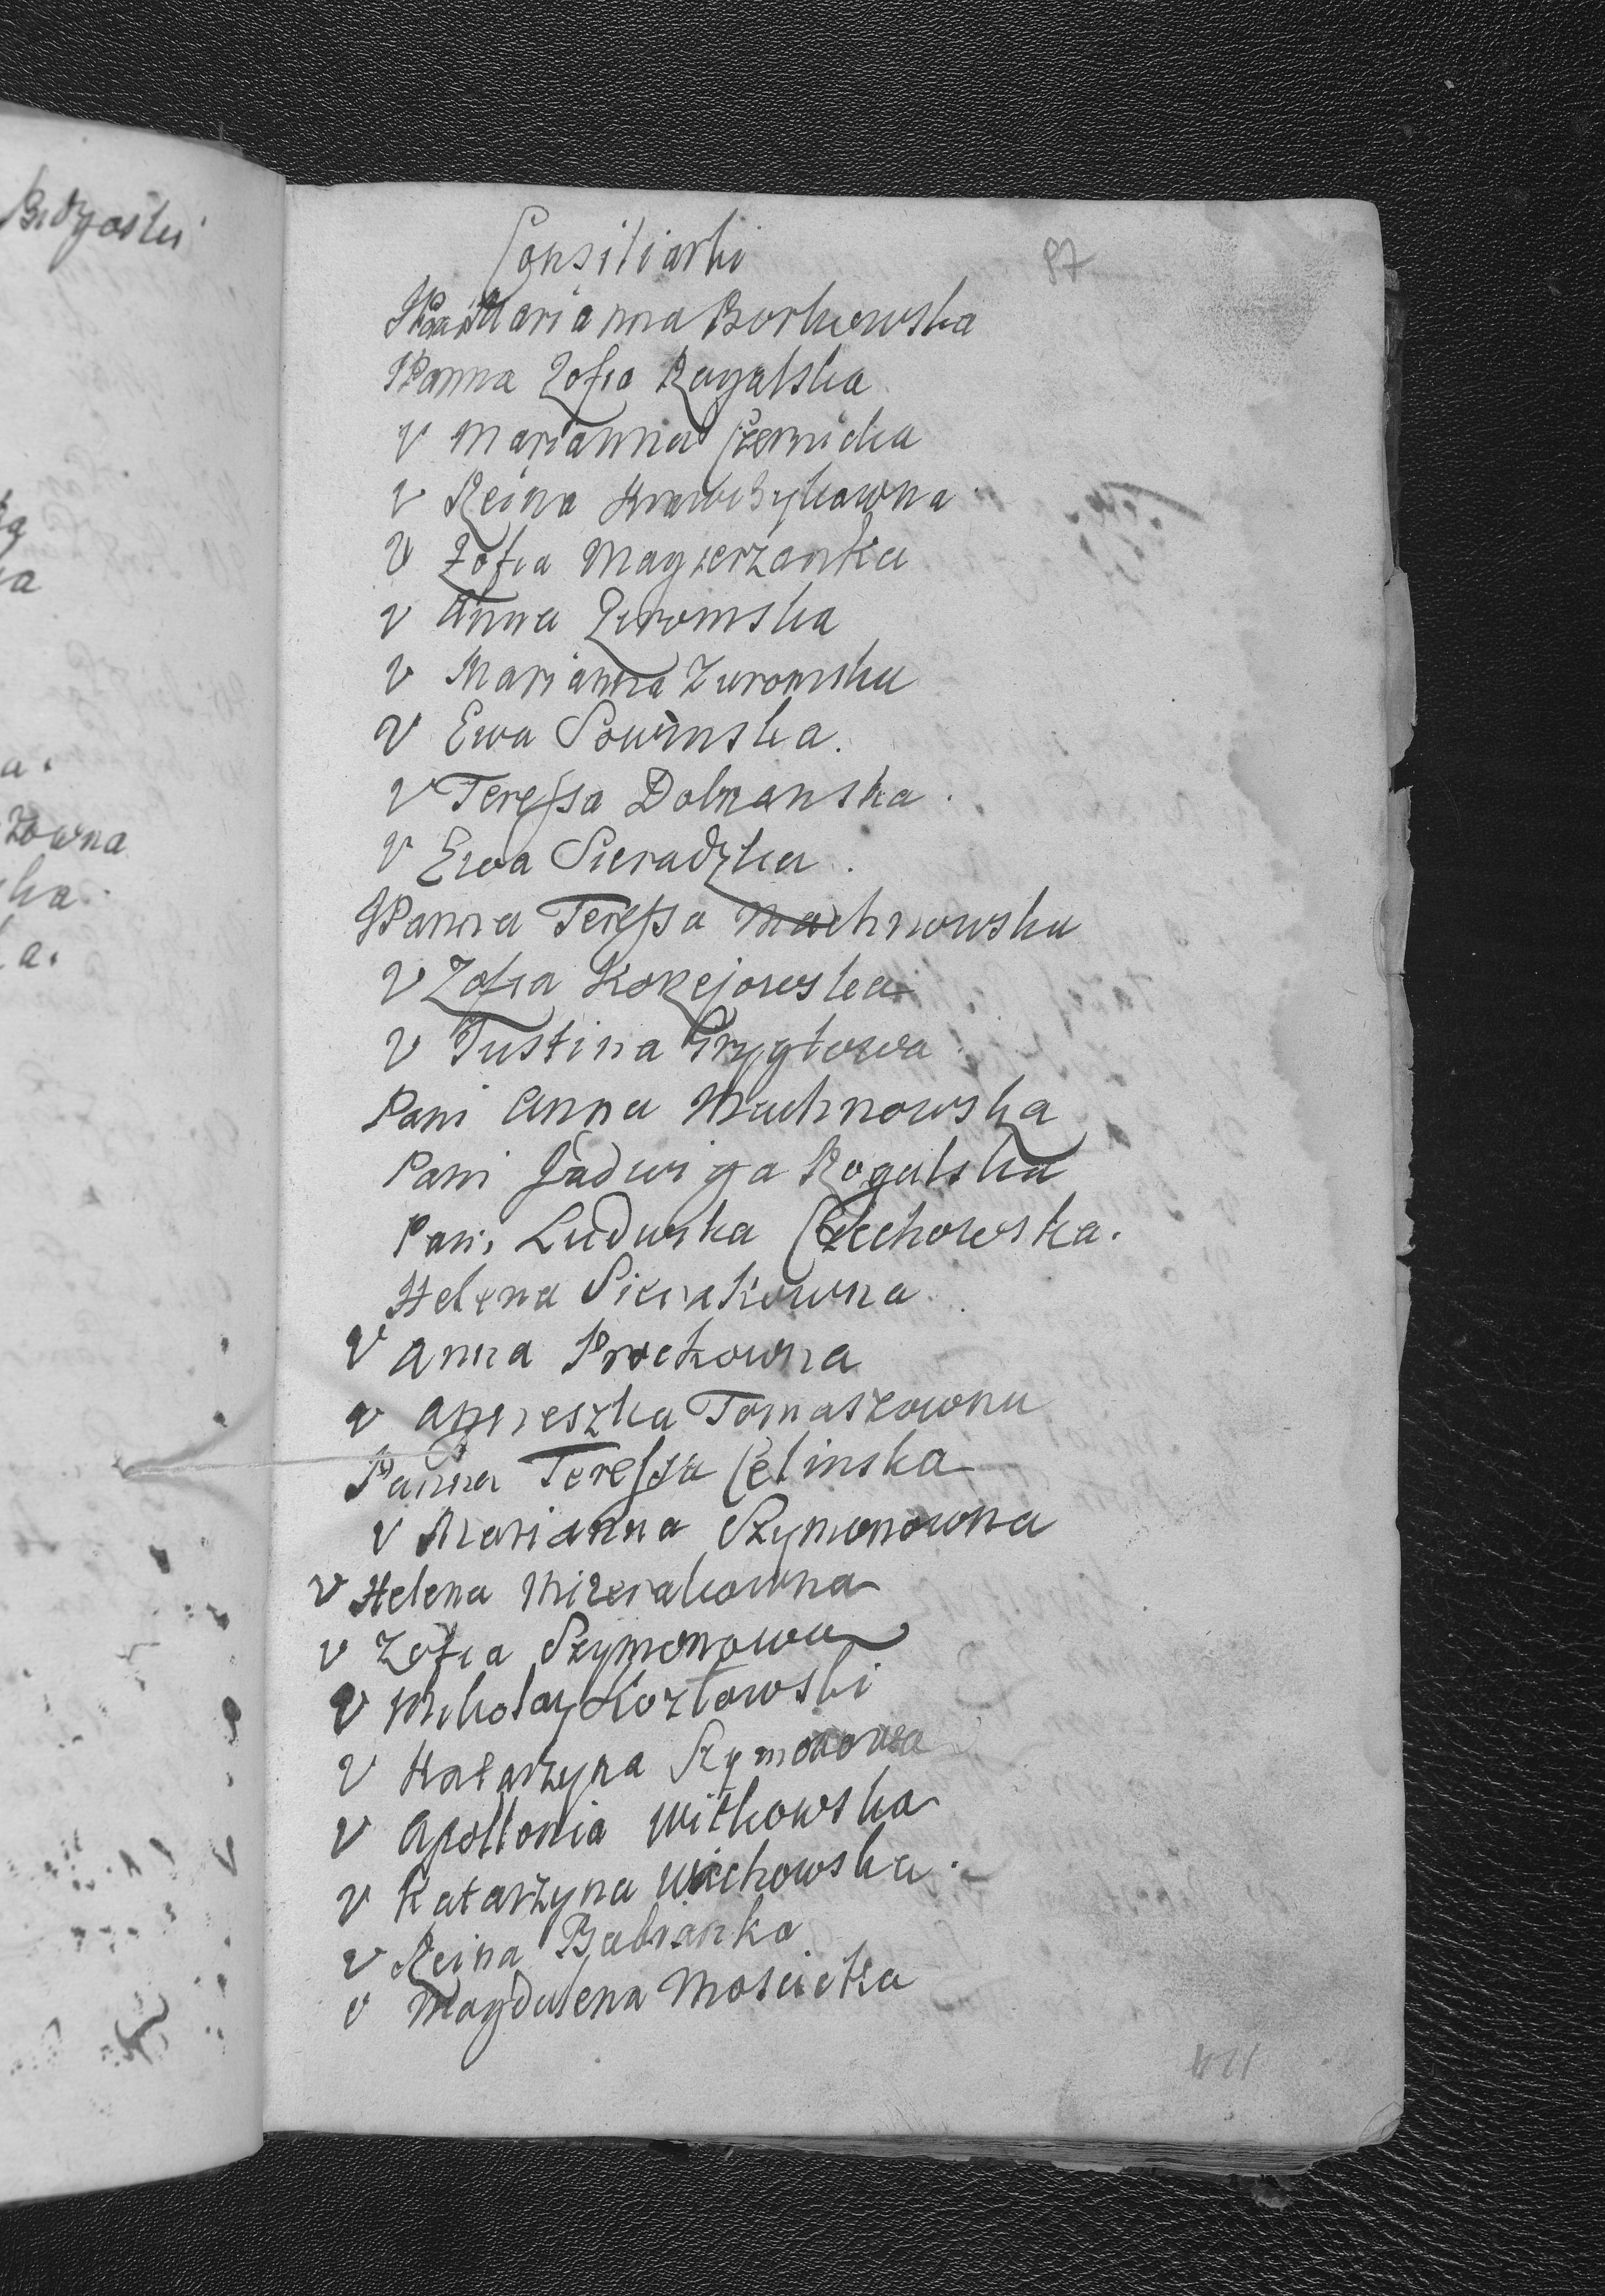 Bidgoski
Consiliarki
87
JPani Marianna Borkowska
JPanna Zofia Rogalska
V Marianna Czernicka
V Reina Krawczykowna
V Zofia Magierzanka
V Anna Zuromska
V Marianna Zuromska
V Ewa Sowinska.
V Teressa Dobranska.
V Ewa Sieradzka.
JPanna Teressa Machnowska
V Zofia Korzejowska
V Justina Prygtowa
Pani Anna Machnowska
Pani Jadwiga Rogalska
Pani Ludwika Czechowska.
Helena Sierakowna.
V Anna Prockowna
V Agnieszka Tomaszowna
Panna Teressa Celinska
V Marianna Szymonowna
V Helena Mizerakowna
V Zofia Szymonowa
V Mikołay Kozłowski
V Katarzyna Szymonowa
V Apollonia Witkowska
V Katarzyna Wichowska.
V Reina Babianka
V Magdalena Moscicka